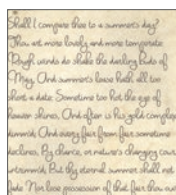 Shall I compare thee to a summer's day?
Thou art more lovely and more temperate:
Rough winds do shake the darling buds of
May, And summer's lease hath all too
short a date: Sometime too hot the eye of
heaven shines, And often is his gold comple
dimm'd; And every fair from fair sometime
declines, By chance, or nature's changing cour
untrimm'd; But thy eternal summer shall not
fade Nor lose possession of that fair thou ow